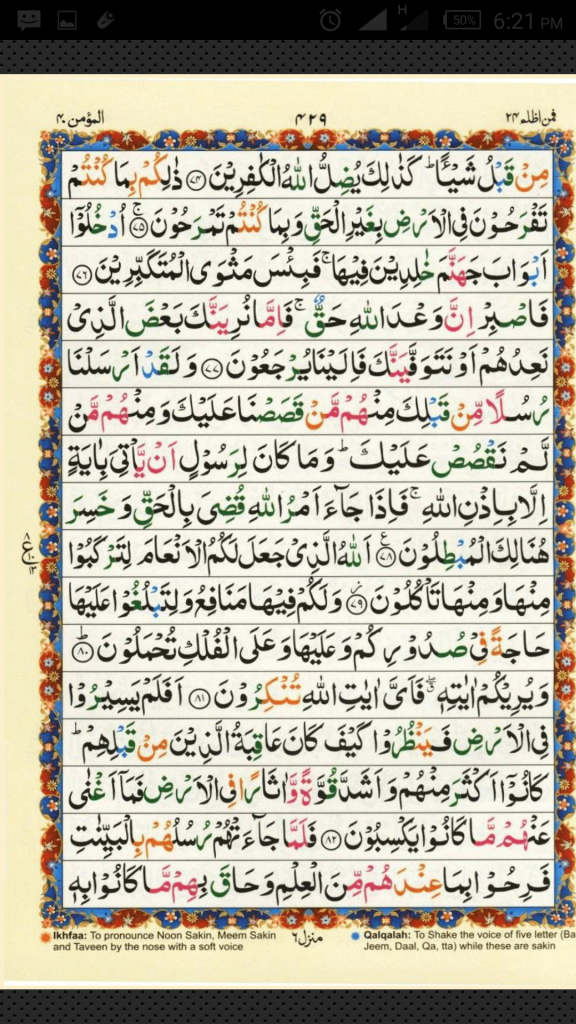 H 50% 6:21 PM
المؤمن ۴۰ ۴۲۹ فمن اظلم ۲۴
مِنْ قَبْلُ شَيْـًٔا ؕ كَذٰلِكَ يُضِلُّ اللّٰهُ الْكٰفِرِيْنَ ﴿۷۴﴾ ذٰلِكُمْ بِمَا كُنْتُمْ
تَفْرَحُوْنَ فِي الْاَرْضِ بِغَيْرِ الْحَقِّ وَبِمَا كُنْتُمْ تَمْرَحُوْنَ ۚ﴿۷۵﴾ اُدْخُلُوْۤا
اَبْوَابَ جَهَنَّمَ خٰلِدِيْنَ فِيْهَا ۚ فَبِئْسَ مَثْوَى الْمُتَكَبِّرِيْنَ ﴿۷۶﴾
فَاصْبِرْ اِنَّ وَعْدَ اللّٰهِ حَقٌّ ۚ فَاِمَّا نُرِيَنَّكَ بَعْضَ الَّذِيْ
نَعِدُهُمْ اَوْ نَتَوَفَّيَنَّكَ فَاِلَيْنَا يُرْجَعُوْنَ ﴿۷۷﴾ وَلَقَدْ اَرْسَلْنَا
رُسُلًا مِّنْ قَبْلِكَ مِنْهُمْ مَّنْ قَصَصْنَا عَلَيْكَ وَمِنْهُمْ مَّنْ
لَّمْ نَقْصُصْ عَلَيْكَ ؕ وَمَا كَانَ لِرَسُوْلٍ اَنْ يَّاْتِيَ بِاٰيَةٍ
اِلَّا بِاِذْنِ اللّٰهِ ۚ فَاِذَا جَآءَ اَمْرُ اللّٰهِ قُضِيَ بِالْحَقِّ وَخَسِرَ
هُنَالِكَ الْمُبْطِلُوْنَ ﴿۷۸﴾ اَللّٰهُ الَّذِيْ جَعَلَ لَكُمُ الْاَنْعَامَ لِتَرْكَبُوْا
مِنْهَا وَمِنْهَا تَاْكُلُوْنَ ﴿۷۹﴾ وَلَكُمْ فِيْهَا مَنَافِعُ وَلِتَبْلُغُوْا عَلَيْهَا
حَاجَةً فِيْ صُدُوْرِكُمْ وَعَلَيْهَا وَعَلَى الْفُلْكِ تُحْمَلُوْنَ ؕ﴿۸۰﴾
وَيُرِيْكُمْ اٰيٰتِهٖ ۖ فَاَيَّ اٰيٰتِ اللّٰهِ تُنْكِرُوْنَ ﴿۸۱﴾ اَفَلَمْ يَسِيْرُوْا
فِي الْاَرْضِ فَيَنْظُرُوْا كَيْفَ كَانَ عَاقِبَةُ الَّذِيْنَ مِنْ قَبْلِهِمْ ؕ
كَانُوْۤا اَكْثَرَ مِنْهُمْ وَاَشَدَّ قُوَّةً وَّاٰثَارًا فِي الْاَرْضِ فَمَاۤ اَغْنٰى
عَنْهُمْ مَّا كَانُوْا يَكْسِبُوْنَ ﴿۸۲﴾ فَلَمَّا جَآءَتْهُمْ رُسُلُهُمْ بِالْبَيِّنٰتِ
فَرِحُوْا بِمَا عِنْدَهُمْ مِّنَ الْعِلْمِ وَحَاقَ بِهِمْ مَّا كَانُوْا بِهٖ
۸ ع ۱۰ ۱۳
Ikhfaa: To pronounce Noon Sakin, Meem Sakin
and Taveen by the nose with a soft voice
منزل ٦
Qalqalah: To Shake the voice of five letter (Ba
Jeem, Daal, Qa, tta) while these are sakin